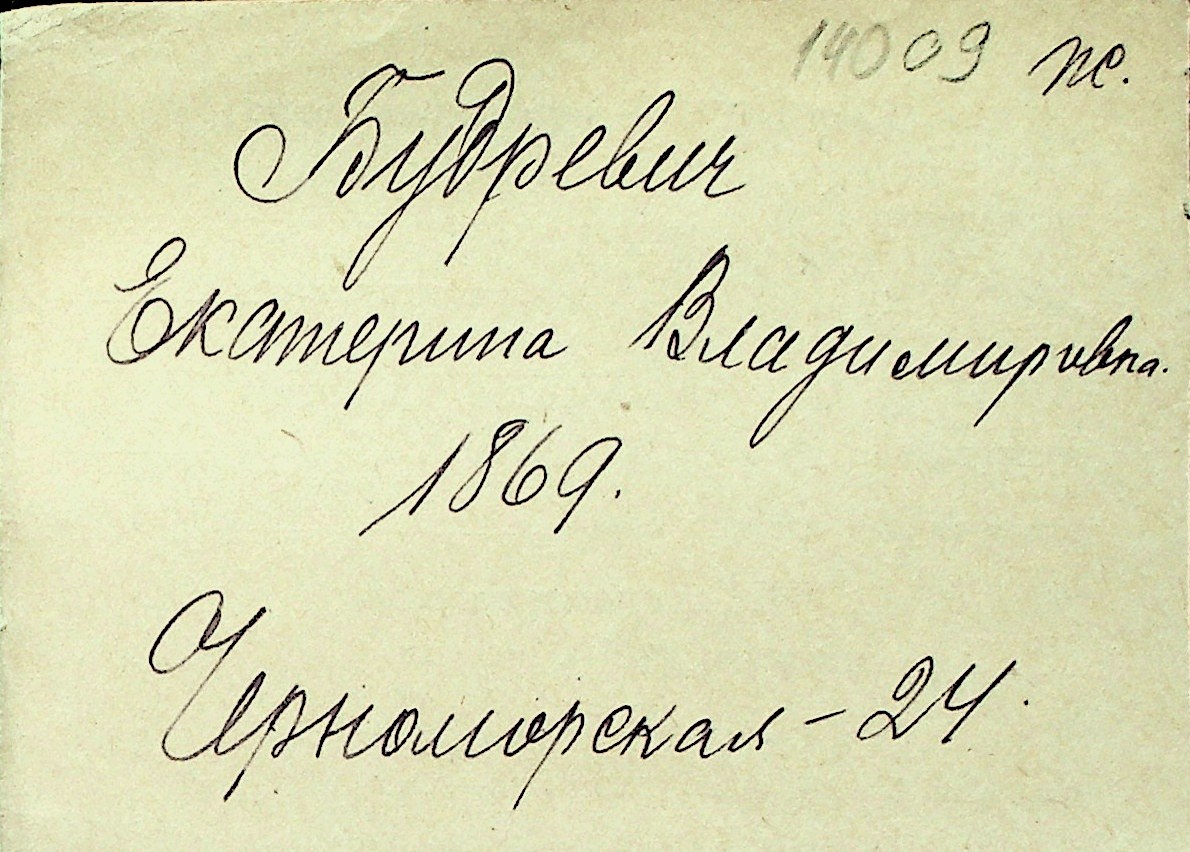 14009 ж.
Будревич
Екатерина Владимировна.
1869.
Черноморская – 24.